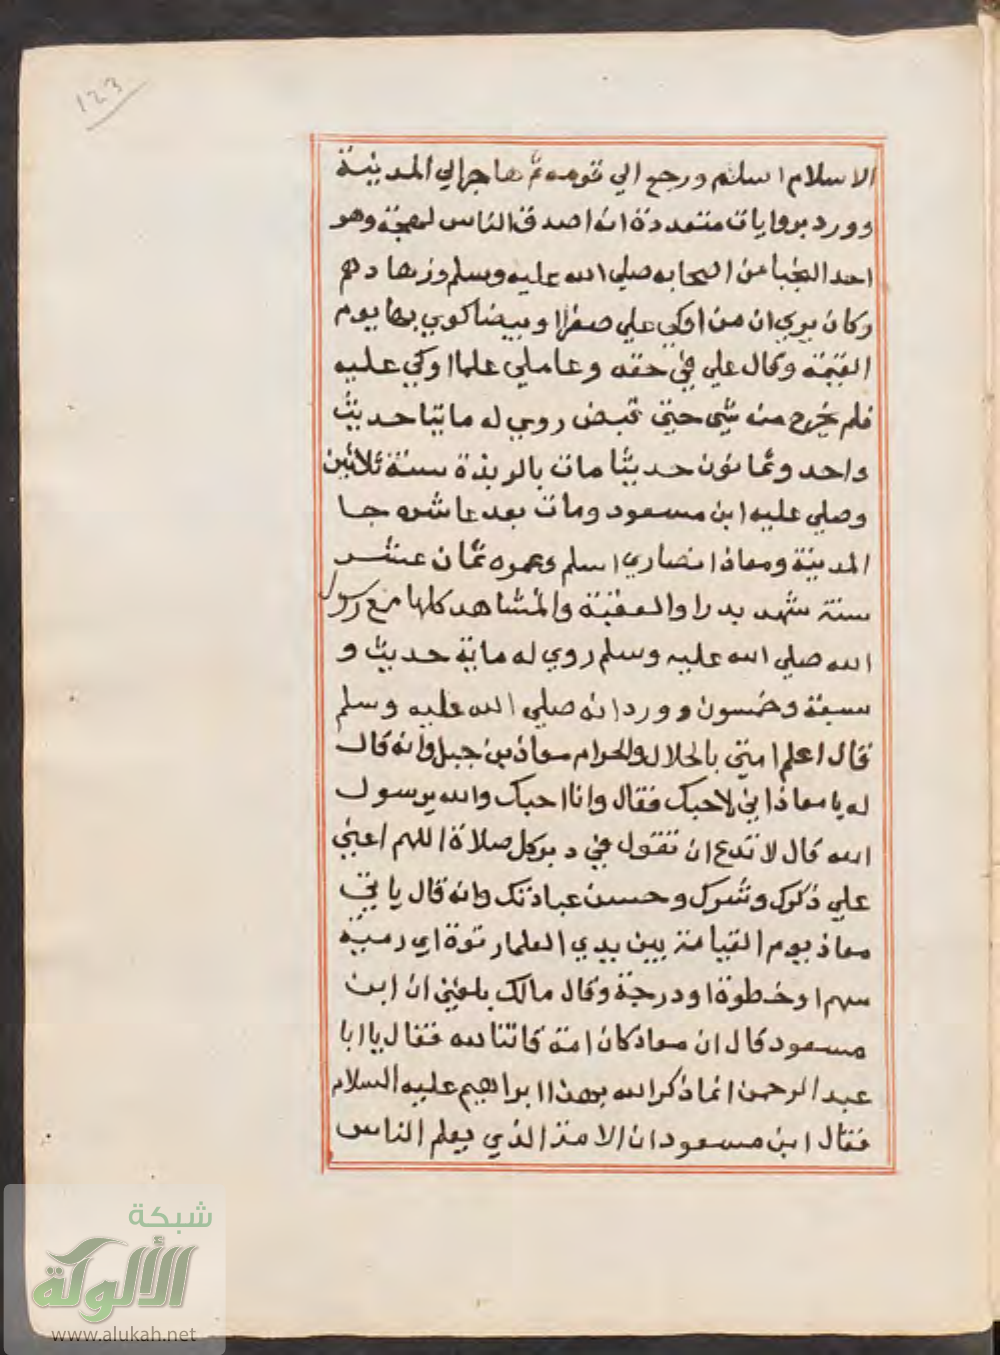 123
الاسلام اسلم ورجع الي قومه ثم هاجر الي المدينة
وورد بروايات متعددة انه اصدق الناس لهجة وهو
احد النجبا من اصحابه صلي الله عليه وسلم وزهادهم
وكان يري ان من اوكي علي صفرا وبيضا كوي بها يوم
القيمة وقال علي في حقه وعا ملي علما اوكي عليه
فلم يخرج منه شي حتي قبض روي له مايتا حديث
واحد وثمانون حديثا مات بالربذة سنة ثلاثين
وصلي عليه ابن مسعود ومات بعد عاشره جا
المدينة ومعاذ انصاري اسلم وعمره ثمان عشر
سنة شهد بدرا والعقبة والمشاهد كلها مع رسول
الله صلي الله عليه وسلم روي له ماية حديث و
سبعة وخمسون وورد انه صلي الله عليه وسلم
قال اعلم امتي بالحلال والحرام معاذ بن جبل وانه قال
له يا معاذ اني لاحبك فقال وانا احبك والله يرسول
الله قال لا تدع ان تقول في دبر كل صلاة اللهم اعني
علي ذكرك وشكرك وحسن عبادتك وانه قال ياتي
معاذ يوم القيامة بين يدي العلما رتوة اي رمية
سهم اوخطوة اودرجة وقال مالك بلغني ان ابن
مسعود قال ان معاذ كان امة قانتا لله فقال يا ابا
عبد الرحمن انما ذكر الله بهذا ابراهيم عليه السلام
فقال ابن مسعود ان الامة الذي يعلم الناس
شبكة
الألوكة
www.alukah.net